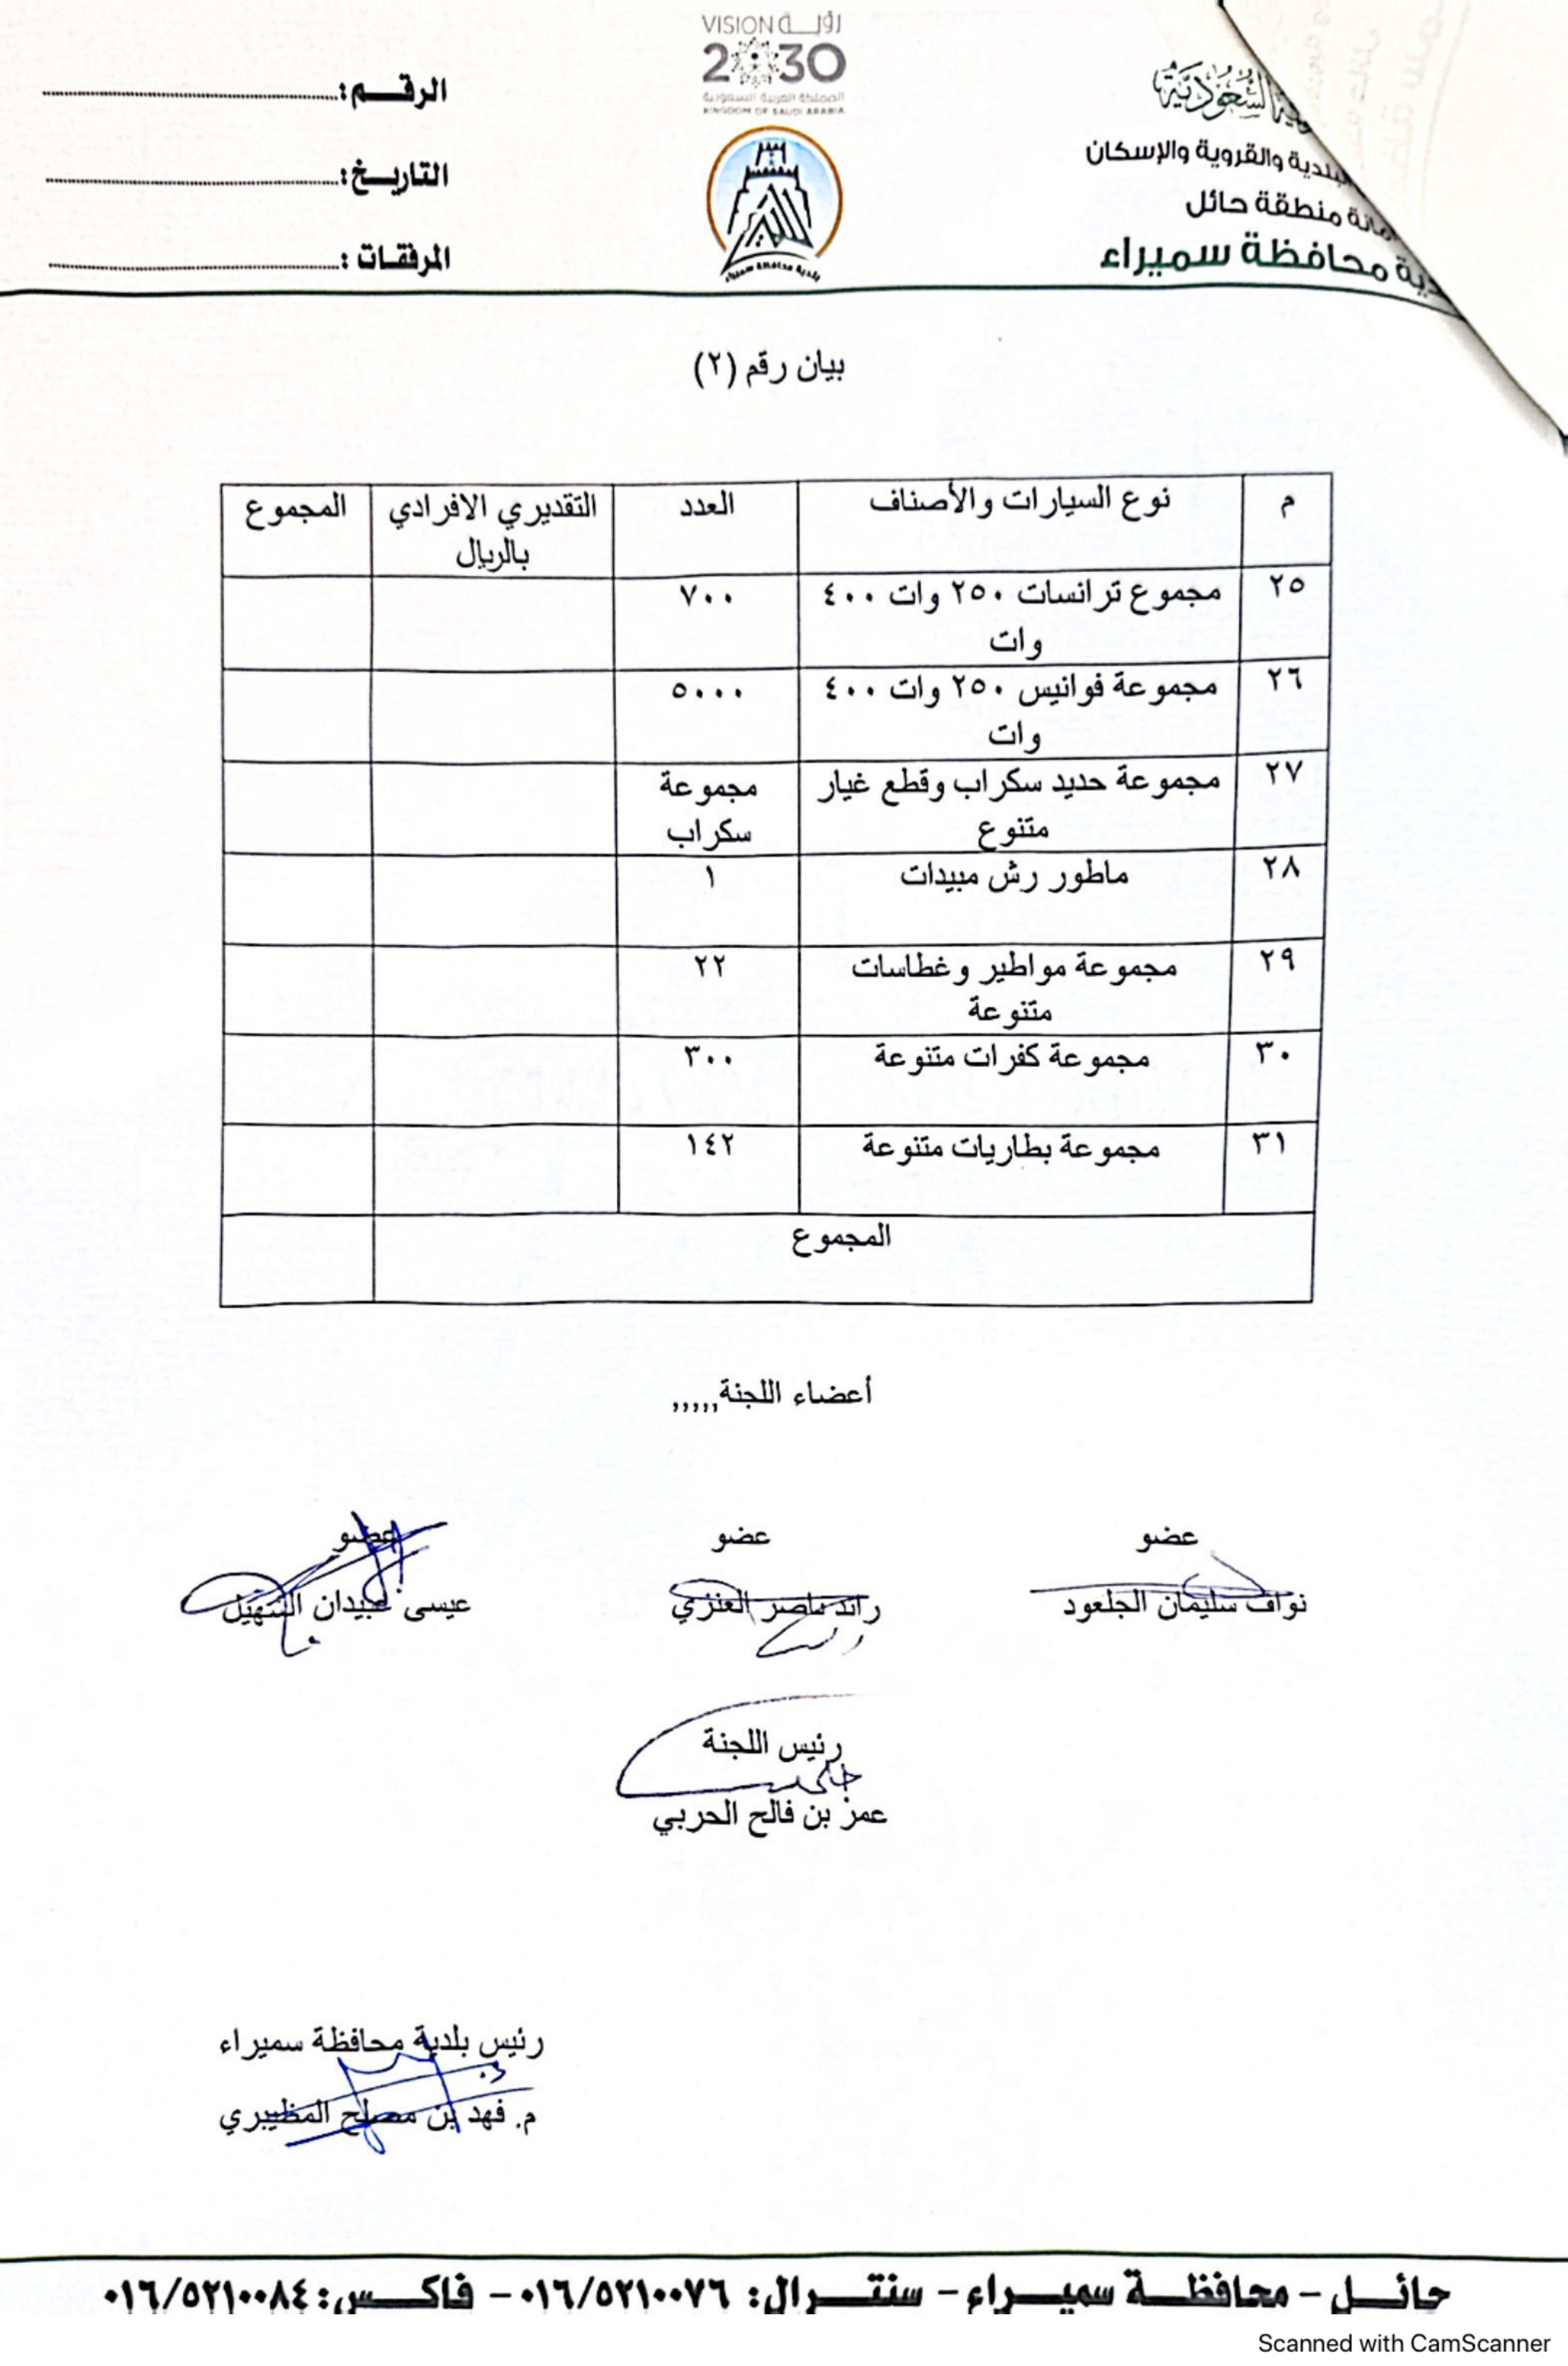 رؤيـــة VISION
2030
المملكة العربية السعودية
KINGDOM OF SAUDI ARABIA
السعودية
البلدية والقروية والإسكان
مانة منطقة حائل
دية محافظة سميراء
الرقـــم:
التاريـــخ:
المرفقـات :
بلدية محافظة سميراء
بيان رقم (٢)
م نوع السيارات والأصناف العدد التقديري الافرادي المجموع
بالريال
٢٥ مجموع ترانسات ٢٥٠ وات ٤٠٠ ٧٠٠
وات
٢٦ مجموعة فوانيس ٢٥٠ وات ٤٠٠ ٥٠٠٠
وات
٢٧ مجموعة حديد سكراب وقطع غيار مجموعة
متنوع سكراب
٢٨ ماطور رش مبيدات ١
٢٩ مجموعة مواطير وغطاسات ٢٢
متنوعة
٣٠ مجموعة كفرات متنوعة ٣٠٠
٣١ مجموعة بطاريات متنوعة ١٤٢
المجموع
أعضاء اللجنة,,,,,
عضو عضو عضو
نواف سليمان الجلعود رائد ناصر العنزي عيسى عبيدان السهيل
رئيس اللجنة
عمر بن فالح الحربي
رئيس بلدية محافظة سميراء
م. فهد بن مصلح المظيبري
حائـــل – محافظـــة سميـــراء – سنتـــرال: ٠١٦/٥٢١٠٠٧٦ – فاكـــس: ٠١٦/٥٢١٠٠٨٤
Scanned with CamScanner